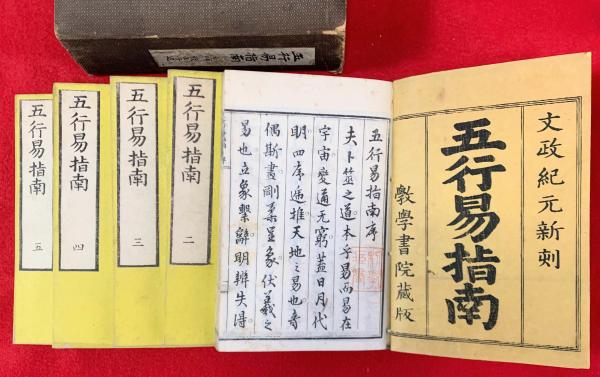 文政紀元新刻
五行易指南
敎學書院藏版
五行易指南序
夫卜筮之道本乎易而易在
宇宙變通无窮蓋日月代
明四序遞推天地之易也奇
偶斯畫剛柔呈象伏羲之
易也立象繫辭明辨失得
五行易指南 二
五行易指南 三
五行易指南 四
五行易指南 五
五行易指南